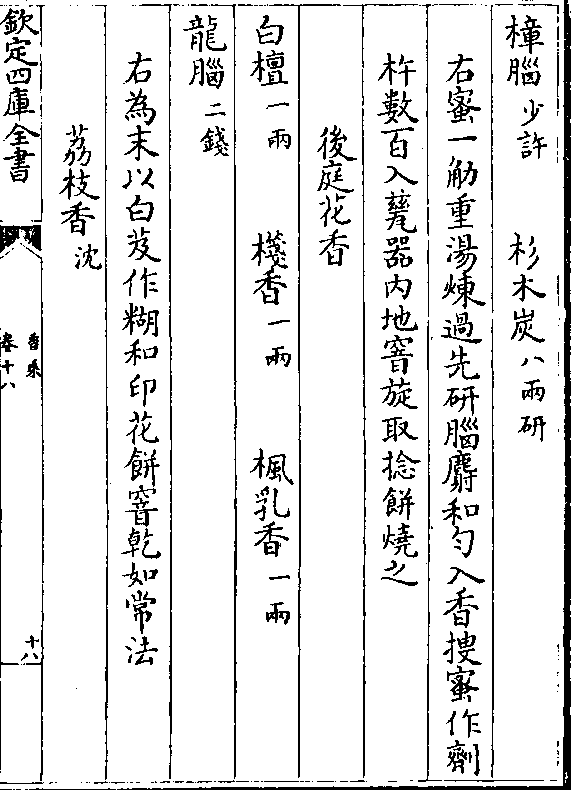 樟腦少許 杉木炭八兩研
右蜜一觔重湯煉過先研腦麝和勻入香搜蜜作劑
杵數百入甆器内地窨旋取捻餅燒之
後庭花香
白檀一兩 棧香一兩 楓乳香一兩
龍腦二錢
右為末以白芨作糊和印花餅窨乾如常法
荔枝香沈
欽定四庫全書
香乘
卷十八
十八